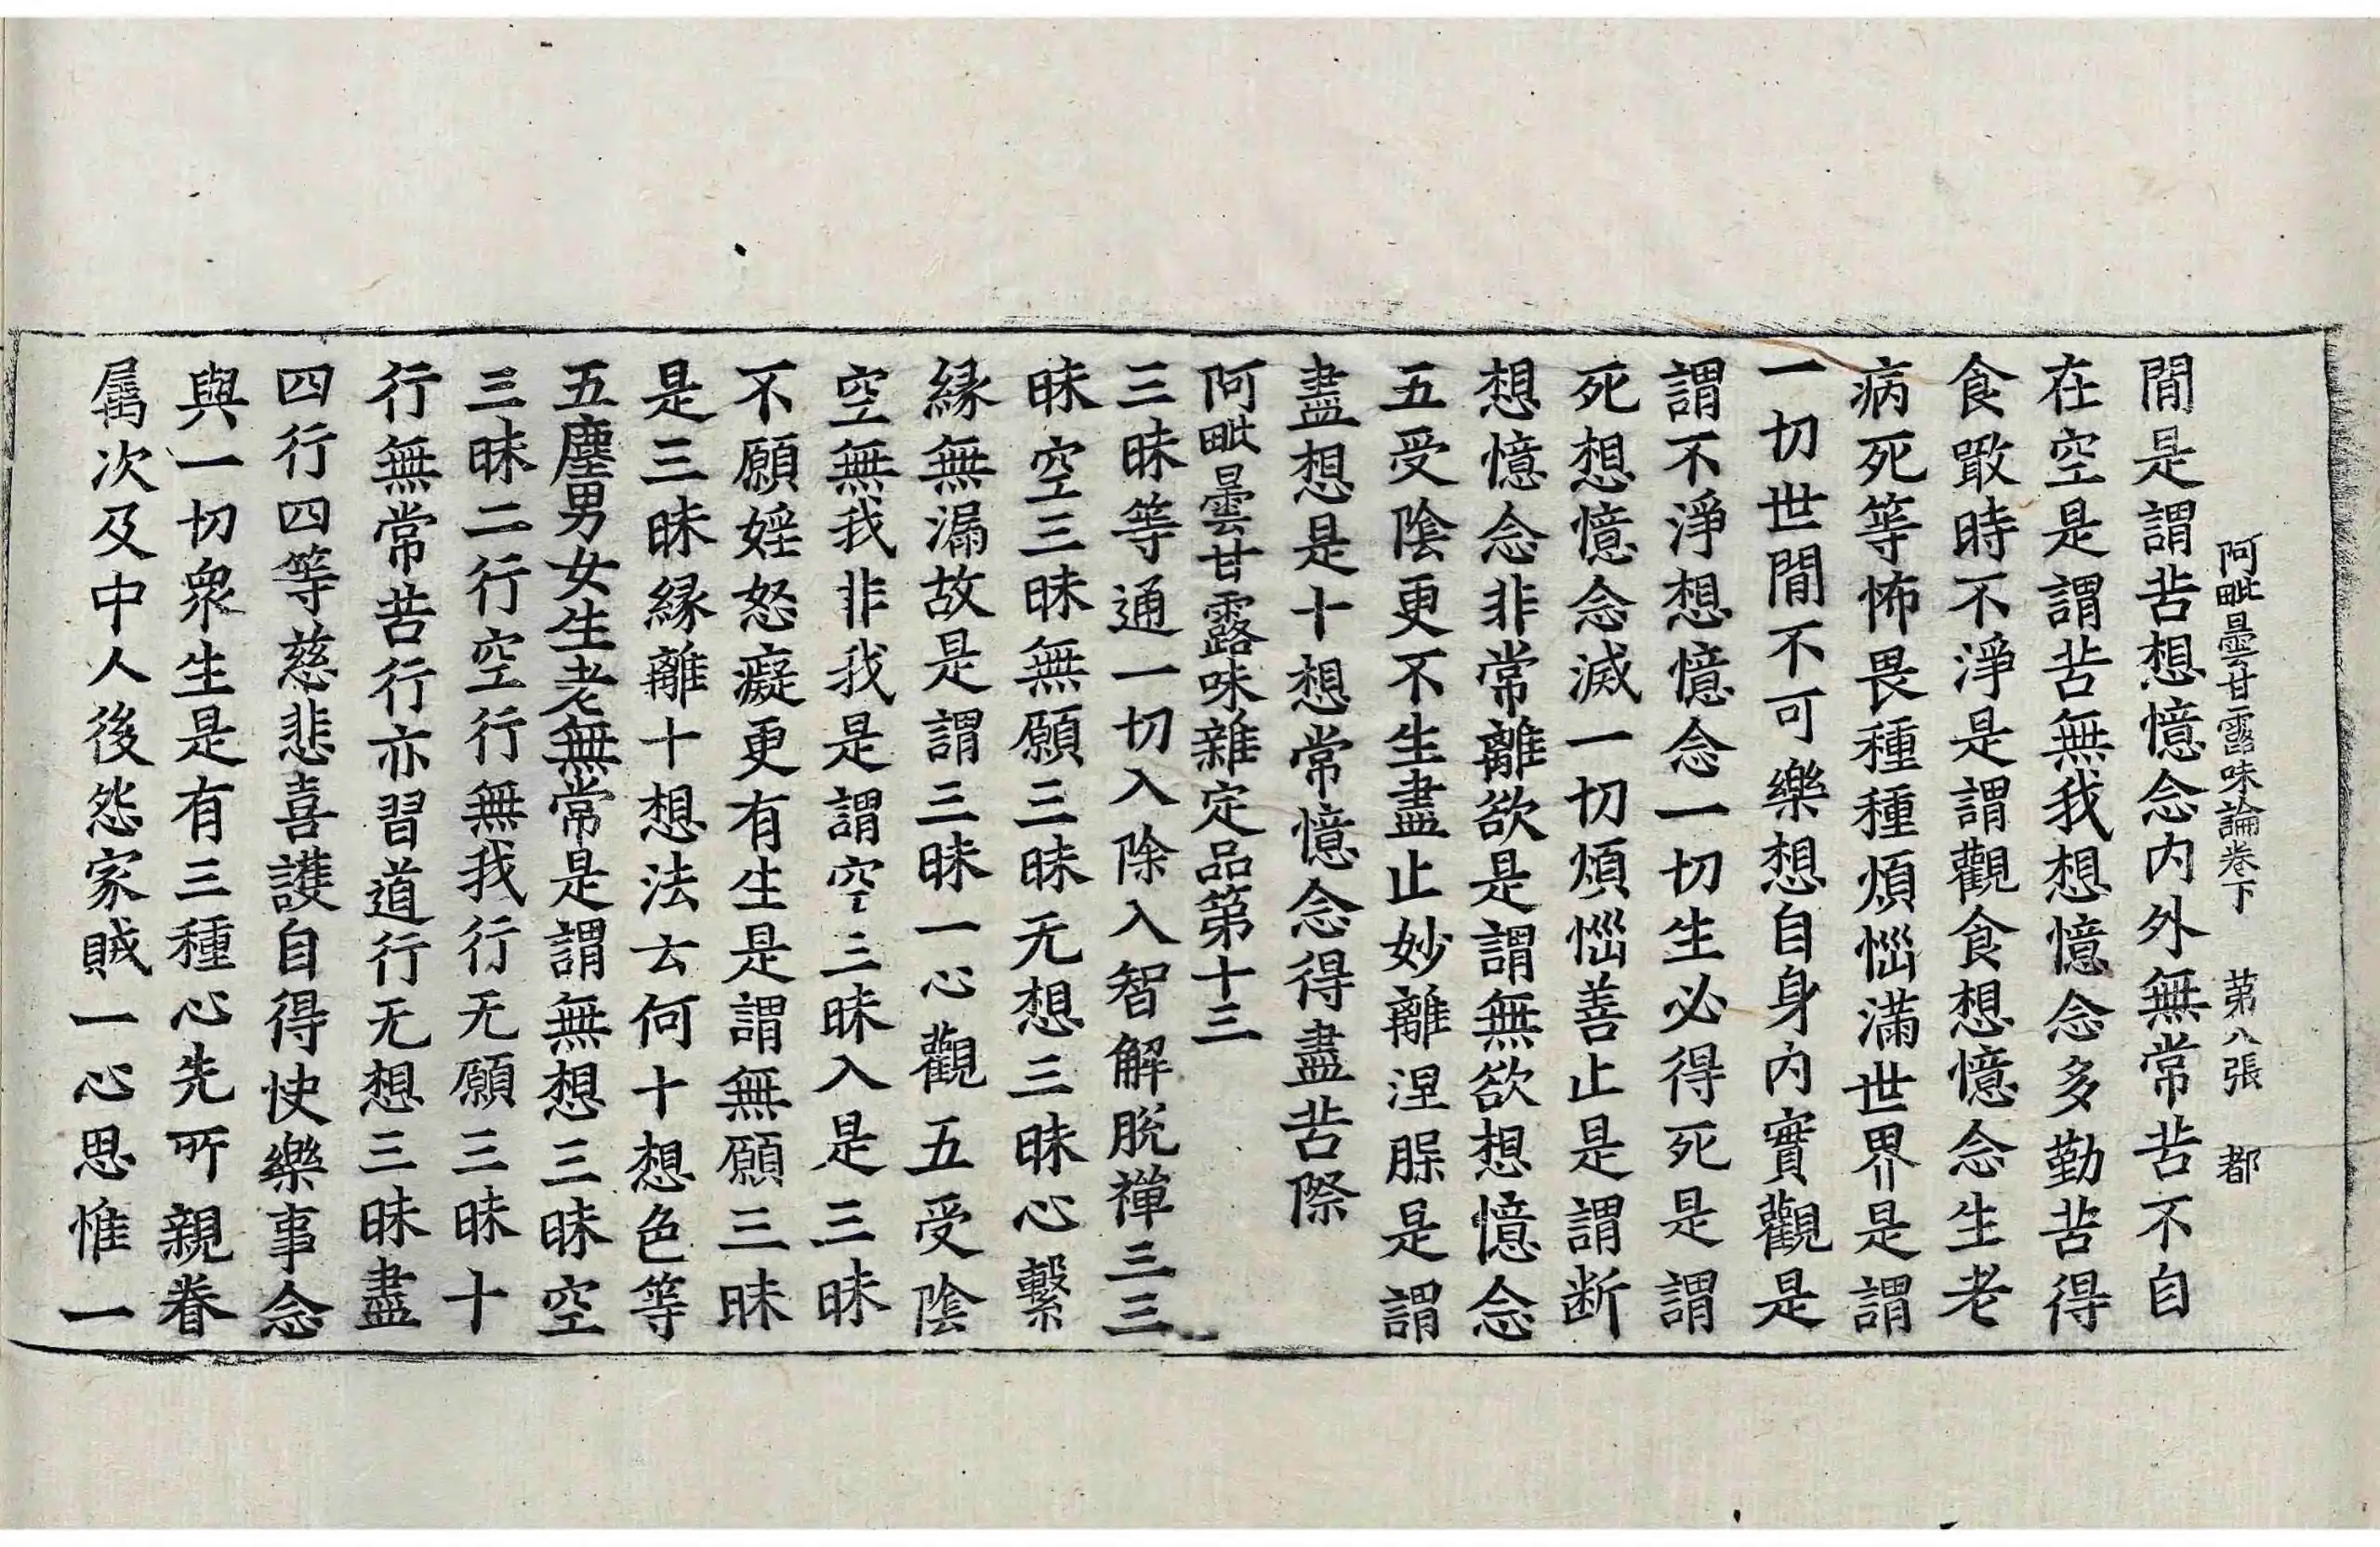 阿毗曇甘露味論卷下 苐八張 都
閒是謂苦想憶念内外無常苦不自
在空是謂苦無我想憶念多勤苦得
食噉時不淨是謂觀食想憶念生老
病死等怖畏種種煩惱滿世界是謂
一切世閒不可樂想自身内實觀是
謂不淨想憶念一切生必得死是謂
死想憶念滅一切煩惱善止是謂断
想憶念非常離欲是謂無欲想憶念
五受陰更不生盡止妙離涅槃是謂
盡想是十想常憶念得盡苦際
阿毗曇甘露味雜定品第十三
三昧等通一切入除入智解脫禪三三
昧空三昧無願三昧无想三昧心繫
縁無漏故是謂三昧一心觀五受陰
空無我非我是謂空三昧入是三昧
不願婬怒癡更有生是謂無願三昧
是三昧縁離十想法云何十想色等
五塵男女生老無常是謂無想三昧空
三昧二行空行無我行无願三昧十
行無常苦行亦習道行无想三昧盡
四行四等慈悲喜護自得快樂事念
與一切衆生是有三種心先所親眷
属次及中人後怨家賊一心思惟一